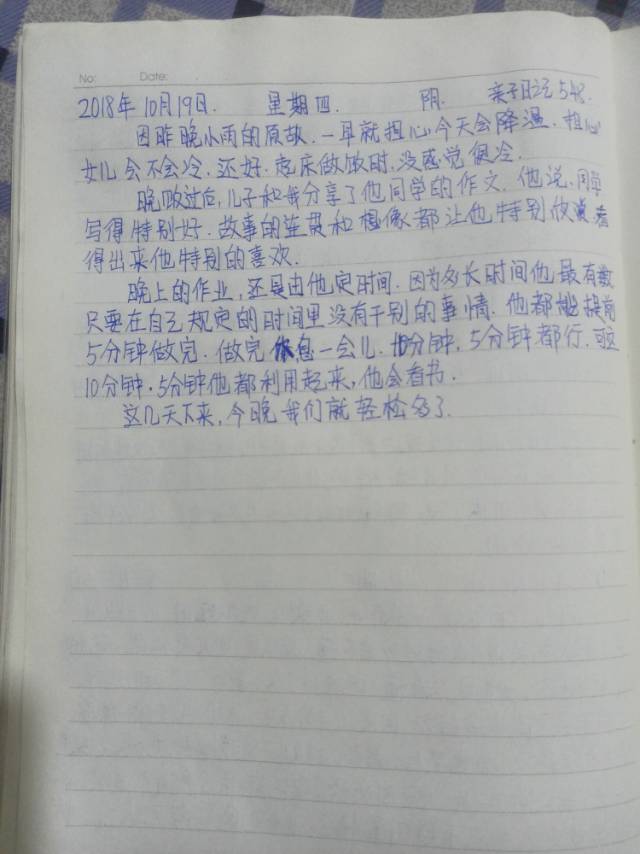 No: Date:
2018年10月19日. 星期四. 阴. 亲子日记548.
因昨晚小雨的原故.一早就担心今天会降温.担心
女儿会不会冷.还好.起床做饭时.没感觉很冷.
晚饭过后,儿子和我分享了他同学的作文.他说.同学
写得特别好.故事的连贯和想像都让他特别欣赏看
得出来他特别的喜欢.
晚上的作业,还是由他定时间.因为多长时间他最有数
只要在自己规定的时间里没有干别的事情.他都能提前
5分钟做完.做完休息一会儿.十分钟,5分钟都行.可这
10分钟.5分钟他都利用起来,他会看书.
这几天下来,今晚我们就轻松多了.